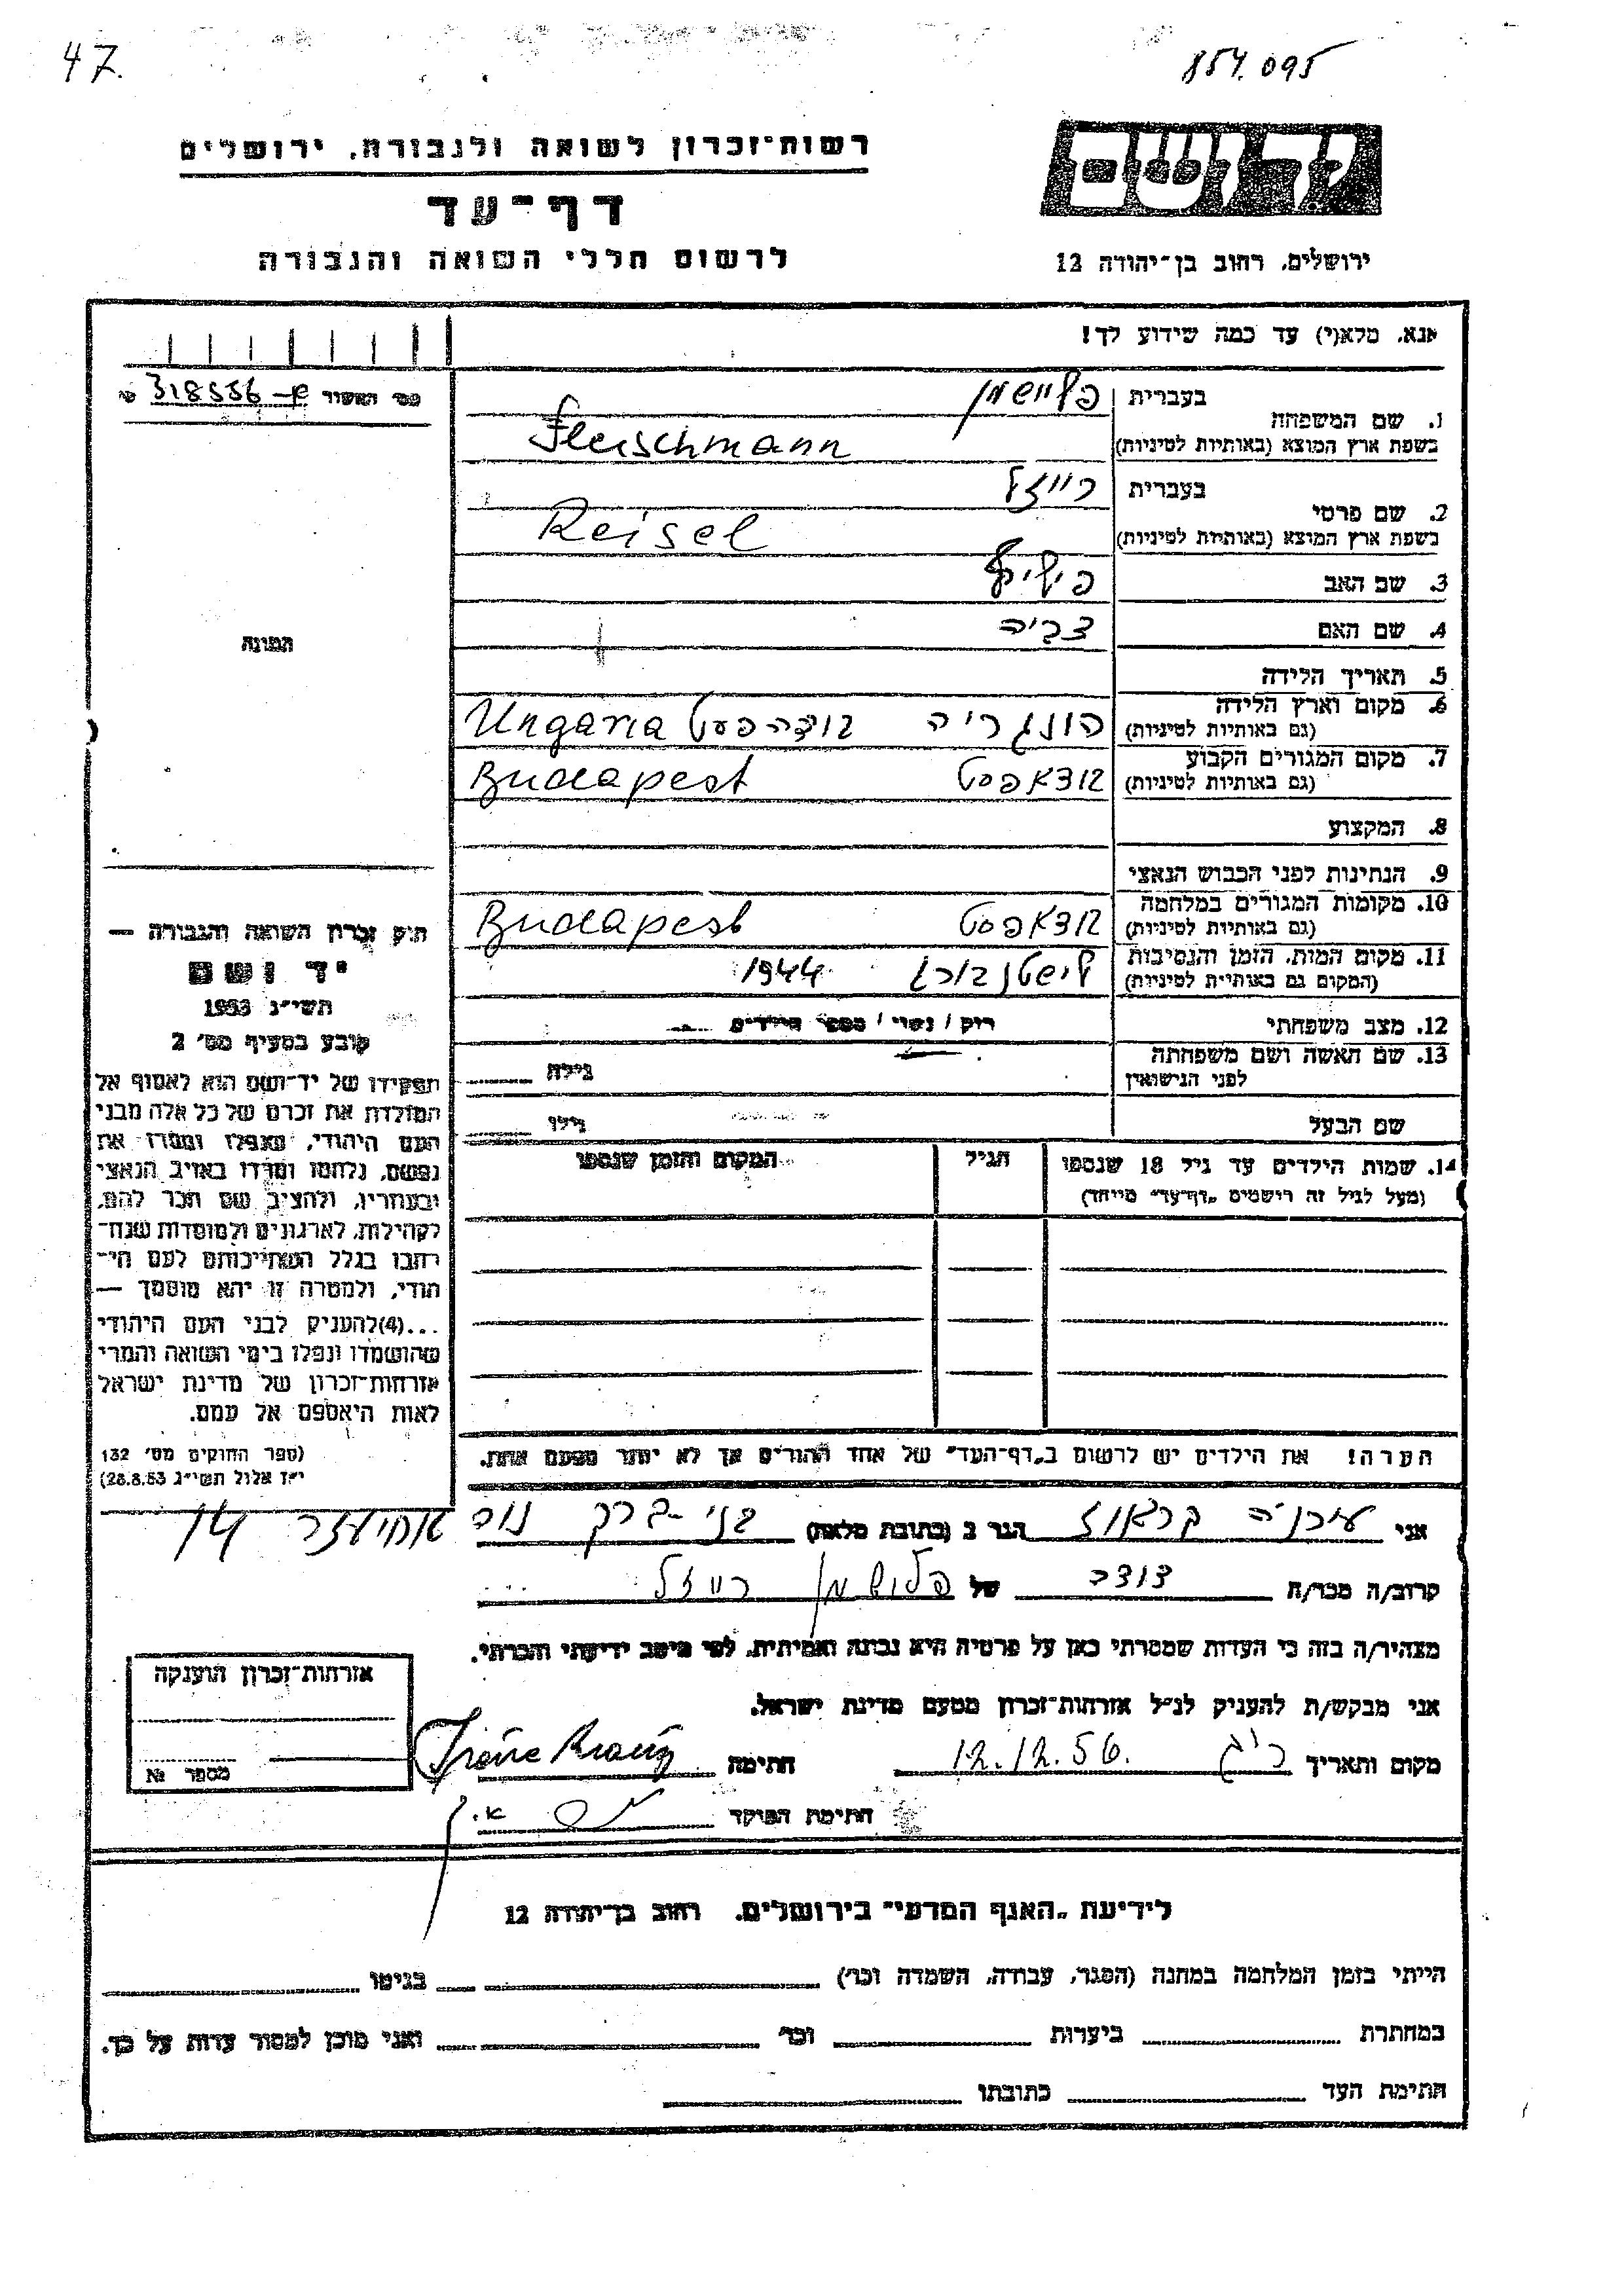 47.
854.095
רשות־זכרון לשואה ולגבורה, ירושלים
דף־עד
לרשום חללי השואה והגבורה
ידושם
ירושלים, רחוב בן־יהודה 12
אנא, מלא(י) עד כמה שידוע לך!
318556
1. שם המשפחה
בעברית פליישמן
בשפת ארץ המוצא (באותיות לטיניות) Fleischmann
2. שם פרטי
בעברית רייזל
בשפת ארץ המוצא (באותיות לטיניות) Reisel
3. שם האב פיליפ
4. שם האם צביה
5. תאריך הלידה
6. מקום וארץ הלידה (גם באותיות לטיניות) הונגריה בודהפסט Ungaria
7. מקום המגורים הקבוע (גם באותיות לטיניות) בודאפסט Budapest
8. המקצוע
9. הנתינות לפני הכבוש הנאצי
10. מקומות המגורים במלחמה (גם באותיות לטיניות) בודאפסט Budapest
11. מקום המות, הזמן והנסיבות (המקום גם באותיות לטיניות) לישטנבורג 1944
12. מצב משפחתי רוק / נשוי / מספר הילדים
13. שם האשה ושם משפחתה לפני הנישואין גילה
שם הבעל גילו
14. שמות הילדים עד גיל 18 שנספו הגיל המקום והזמן שנספו
(מעל לגיל זה רושמים „דף־עד” מיוחד)
התמונה
חוק זכרון השואה והגבורה —
יד ושם
תשי״ג 1953
קובע בסעיף מס׳ 2
תפקידו של יד־ושם הוא לאסוף אל
המולדת את זכרם של כל אלה מבני
העם היהודי, שנפלו ומסרו את
נפשם, נלחמו ומרדו באויב הנאצי
ובעוזריו, ולהציב שם וזכר להם,
לקהילות, לארגונים ולמוסדות שנח־
רבו בגלל השתייכותם לעם הי־
הודי, ולמטרה זו יהא מוסמך —
...(4)להעניק לבני העם היהודי
שהושמדו ונפלו בימי השואה והמרי
אזרחות־זכרון של מדינת ישראל
לאות היאספם אל עמם.
(ספר החוקים מס׳ 132
י״ז אלול תשי״ג 28.8.53)
הערה! את הילדים יש לרשום ב„דף־העד” של אחד ההורים אך לא יותר מפעם אחת.
אני אירנה בראוז הגר ב (כתובת מלאה) בני-ברק נוה אחיעזר 14
קרוב/ה מכר/ה דודה של פלישמן רייזל
מצהיר/ה בזה כי העדות שמסרתי כאן על פרטיה היא נכונה ואמיתית, לפי מיטב ידיעתי והכרתי.
אני מבקש/ת להעניק לנ״ל אזרחות־זכרון מטעם מדינת ישראל.
מקום ותאריך 12.12.56. חתימה Iréne Krausz
חתימת הפוקד
אזרחות־זכרון הוענקה
מספר №
לידיעת „האגף המדעי” בירושלים, רחוב בן־יהודה 12
הייתי בזמן המלחמה במחנה (הסגר, עבודה, השמדה וכו׳) בגיטו
במחתרת ביערות וכו׳ ואני מוכן למסור עדות על כך.
חתימת העד כתובתו